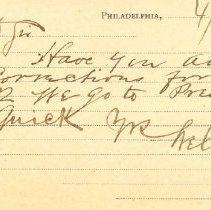 PHILADELPHIA, 4/
Sir
Have you a
Corrections for
2 We go to Pre
Quick Yrs